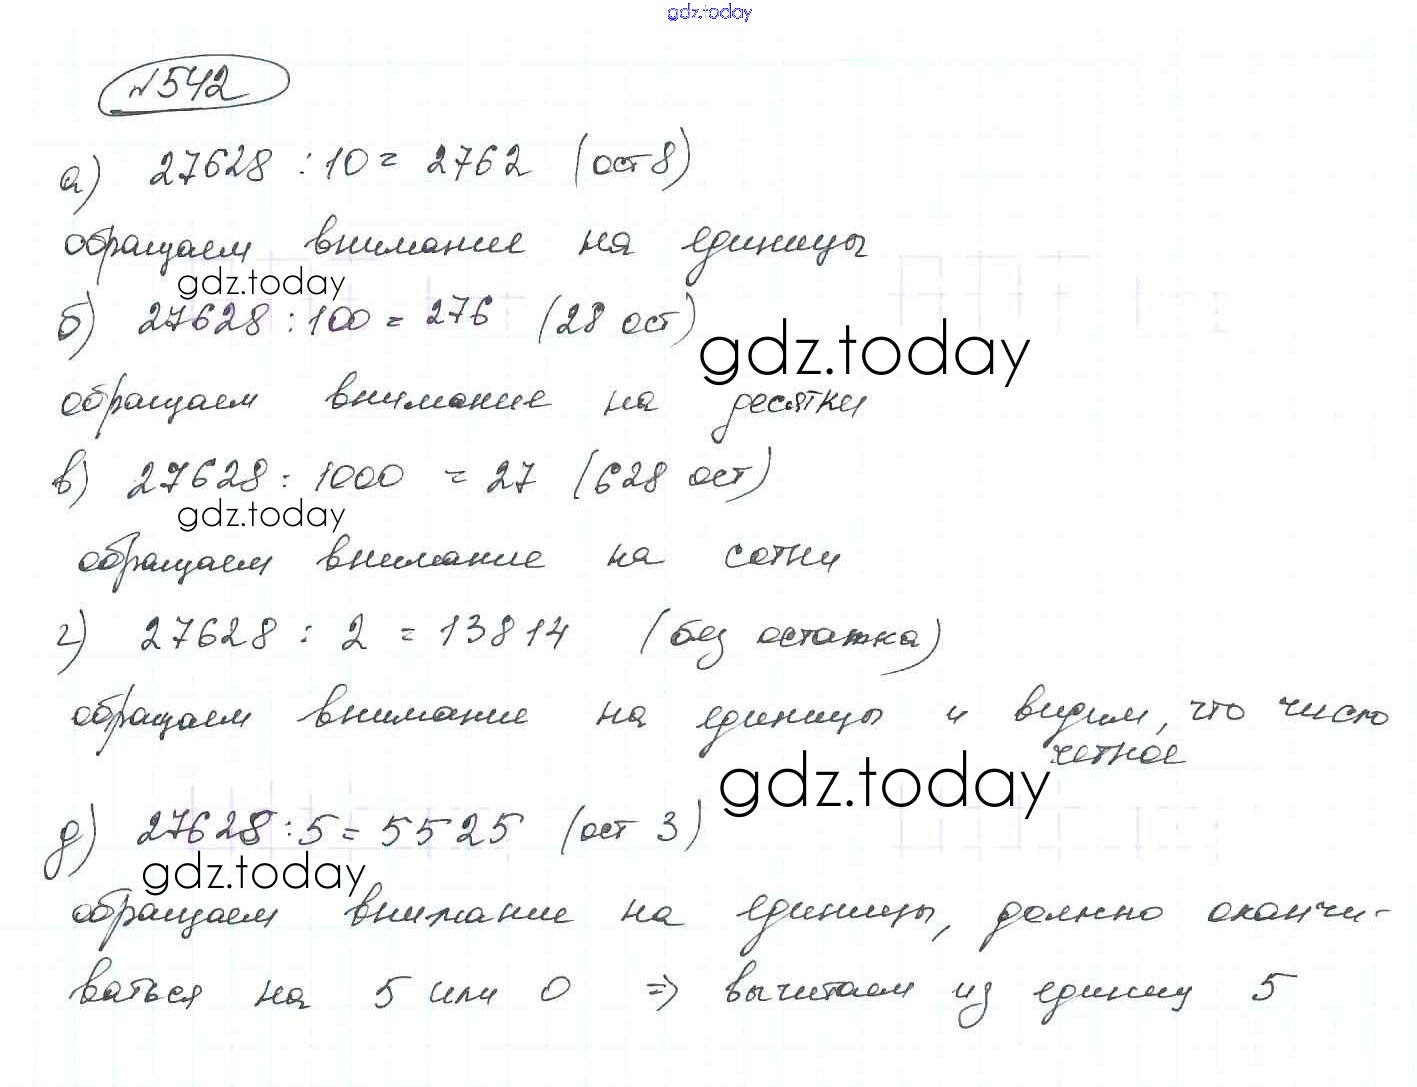 gdz.today
№542
а) 27628 : 10 = 2762 (ост 8)
обращаем внимание на единицы
gdz.today
б) 27628 : 100 = 276 (28 ост)
gdz.today
обращаем внимание на десятки
в) 27628 : 1000 = 27 (628 ост)
gdz.today
обращаем внимание на сотни
г) 27628 : 2 = 13814 (без остатка)
обращаем внимание на единицы и видим, что число
четное
gdz.today
д) 27628 : 5 = 5525 (ост 3)
gdz.today
обращаем внимание на единицы, должно оканчи-
ваться на 5 или 0 => вычитаем из единиц 5